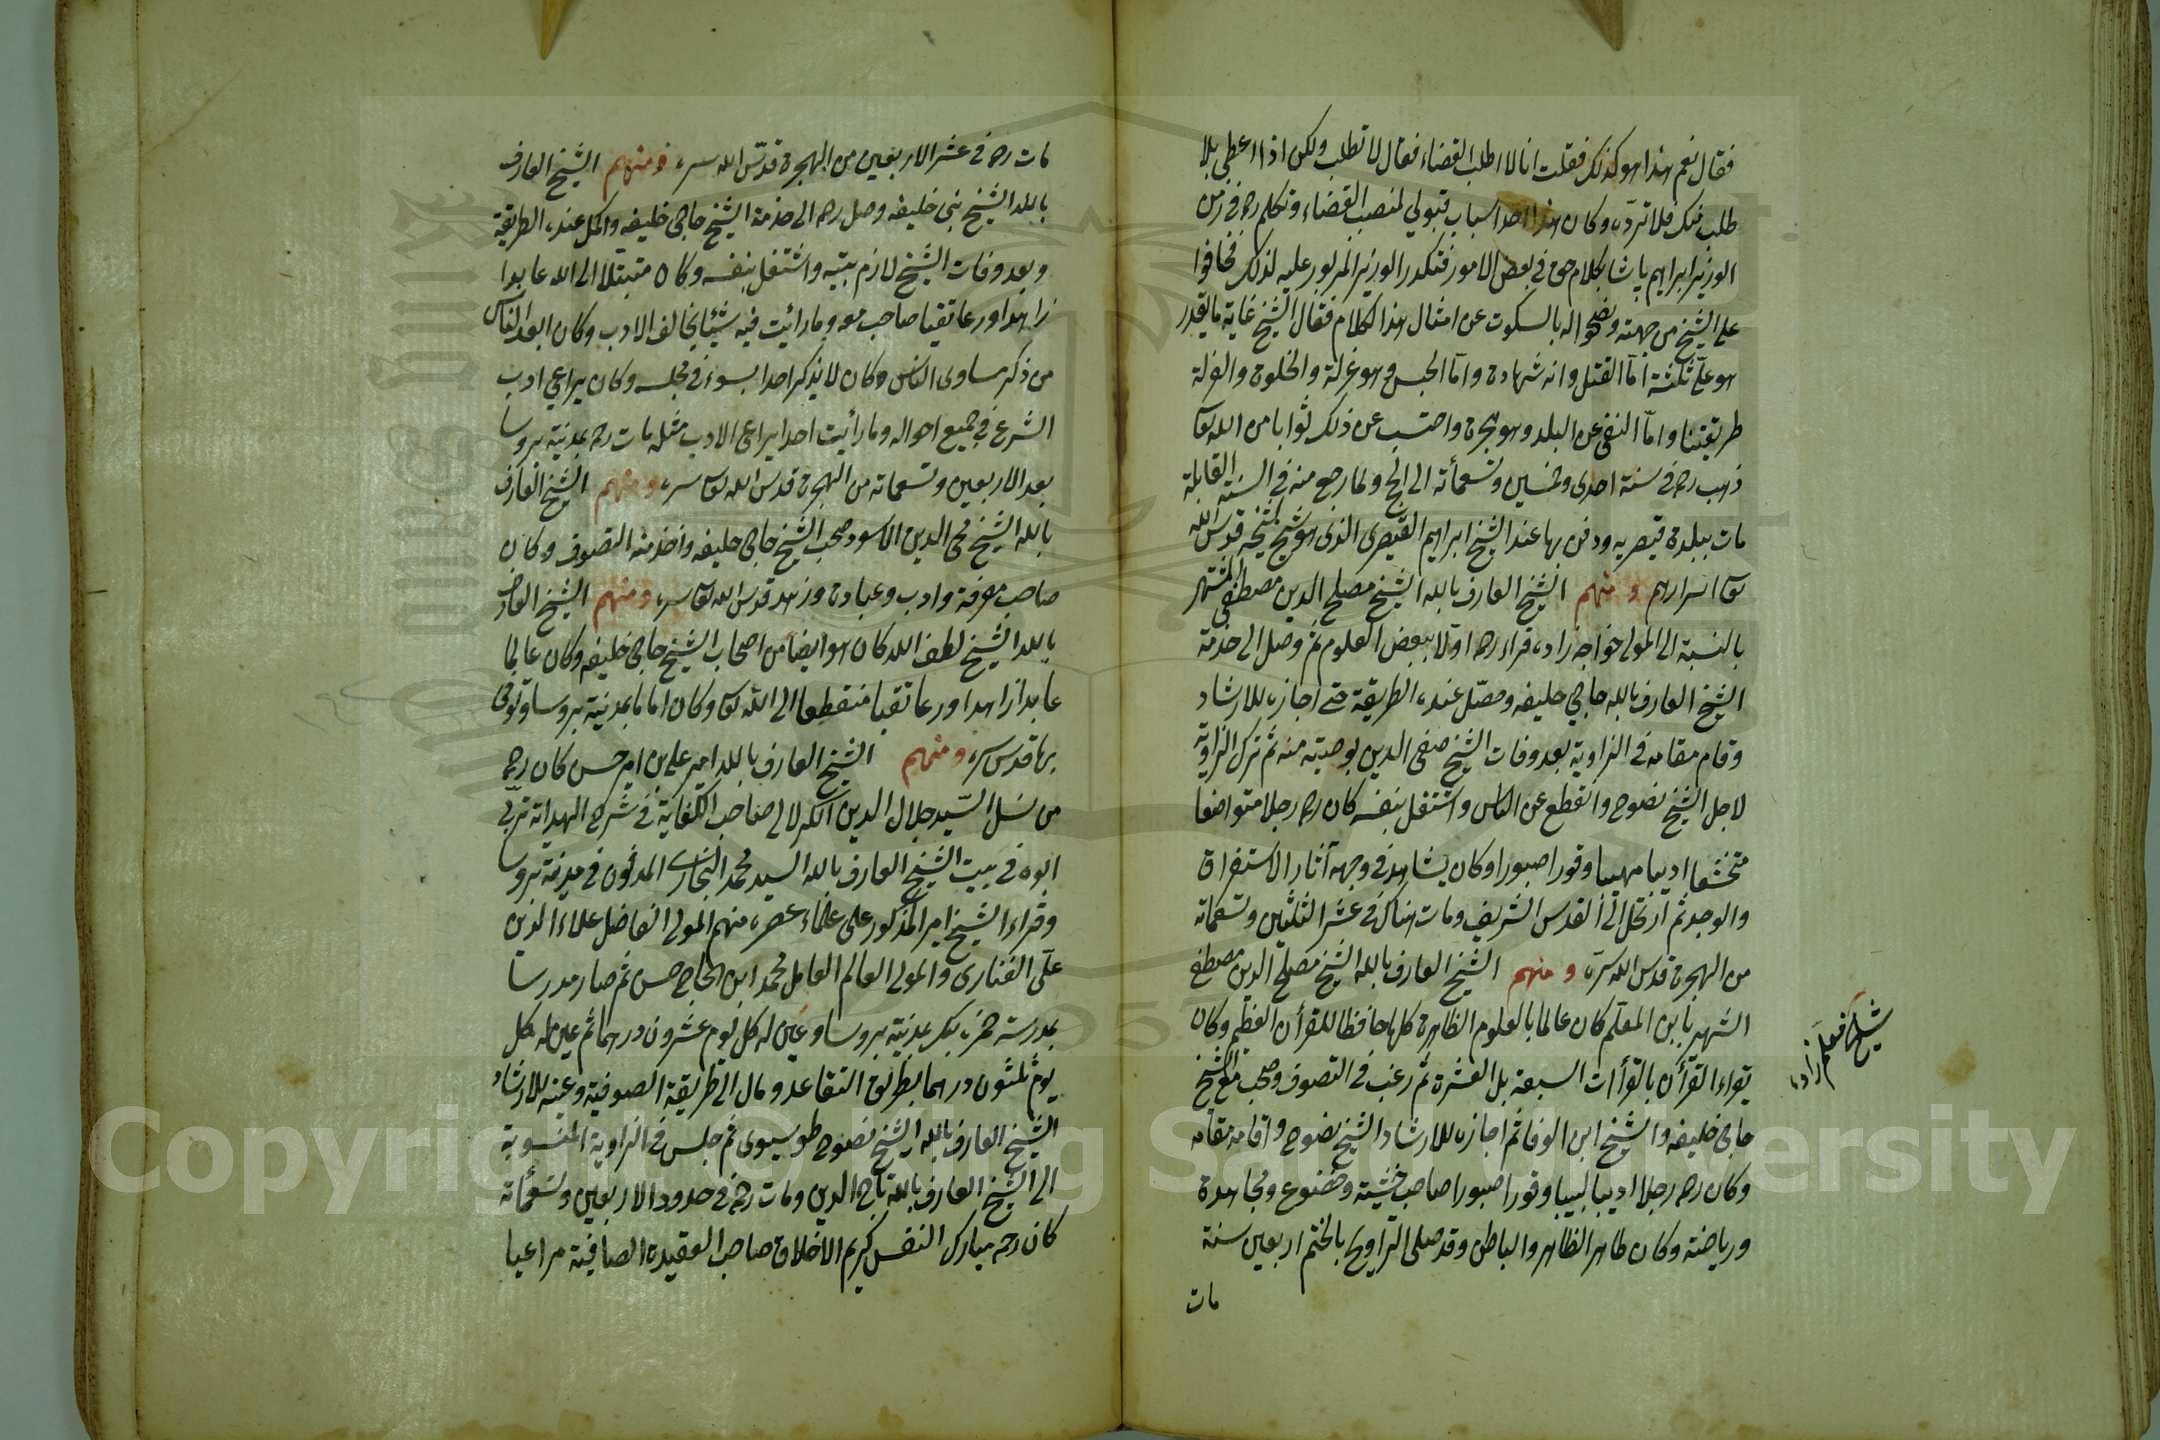 فقال نعم هذا هو كذلك فقلت انا لا اطلب القضاء فقال لا تطلب ولكن اذا اعطى بلا
طلب منك فلا تردّه وكان هذا احد اسباب قبولي لمنصب القضاء وتكلم رح في زمن
الوزير ابراهيم باشا بكلام حق في بعض الامور فتكدر الوزير المزبور عليه لذلك فخافوا
على الشيخ من جهته ونصحوا له بالسكوت عن امثال هذا الكلام فقال الشيخ غاية ما يقدر
هو علىّ ثلثة امّا القتل وانه شهادة وامّا الحبس وهو عزلة والخلوة والعزلة
طريقتنا وامّا النفى عن البلد وهو هجرة واحتسب عن ذلك ثوابا من الله تعا
ذهب رح في سنة احدى وخمسين وتسعمائة الى الحج ولما رجع منه في السنة القابلة
مات ببلدة قيصريه ودفن بها عند الشيخ ابراهيم القيصرى الذى هو شيخ شيخه قدس الله
تعا اسرارهم ومنهم الشيخ العارف بالله الشيخ مصلح الدين مصطفى المشتهر
بالنسبة الى المولى خواجه زاده قراء رحه اولا ببعض العلوم ثم وصل الى خدمة
الشيخ العارف بالله حاجي خليفه وحصّل عنده الطريقة حتى اجازه للارشاد
وقام مقامه في الزاوية بعد وفات الشيخ صفى الدين بوصيته منه ثم ترك الزاوية
لاجل الشيخ نصوح وانقطع عن الناس واشتغل بنفسه كان رحه رجلا متواضعا
متخشعا اديبا مهيبا وقورا صبورا وكان يشاهد في وجهه آثار الاستغراق
والوجد ثم ارتحل الى القدس الشريف ومات هناك في عشر الثلثين وتسعمائه
من الهجرة قدس الله سره ومنهم الشيخ العارف بالله الشيخ مصلح الدين مصطفى
الشهير بابن المعلّم كان عالما بالعلوم الظاهرة كلها حافظا للقرأن العظيم وكان
يقراء القرأن بالقرأات السبعة بل العشرة ثم رغب في التصوف وصحب مع الشيخ
حاجى خليفه والشيخ ابن الوفا ثم اجازه للارشاد الشيخ نصوح واقامه مقامه
وكان رحه رجلا اديبا لبيبا وقورا صبورا صاحب خشية وخضوع ومجاهدة
ورياضة وكان طاهر الظاهر والباطن وقد صلى التراويح بالختم اربعين سنة
مات
معلم زاده
مات رحه في عشر الاربعين من الهجرة قدّس الله سره ومنهم الشيخ العارف
بالله الشيخ نبى خليفه وصل رحه الى خدمة الشيخ حاجى خليفه واكمل عنده الطريقة
وبعد وفات الشيخ لازم بيته واشتغل بنفسه وكان متبتّلا الى الله عابدا
زاهدا ورعا تقيا صاحب محو وما رأيت فيه شيئا يخالف الادب وكان ابعد الناس
من ذكر مساوى الناس وكان لا يذكر احدا بسوء في مجلسه وكان يراعى ادب
الشرع في جميع احواله وما رأيت احدا يراعى الادب مثله مات رحه بمدينة بروسا
بعد الاربعين وتسعمائه من الهجرة قدس الله تعا سره ومنهم الشيخ العارف
بالله الشيخ محى الدين الاسود صحب الشيخ حاجى خليفه واخذ منه التصوف وكان
صاحب معرفة وادب وعبادة وزهد قدس الله تعا سره ومنهم الشيخ العارف
بالله الشيخ لطف الله كان هو ايضا من اصحاب الشيخ حاجى خليفه وكان عالما
عابدا زاهدا ورعا تقيا منقطعا الى الله تعا وكان اماما بمدينة بروسا وتوفى
بها قدس سره ومنهم الشيخ العارف بالله امير على بن امير حسن كان رحه
من نسل السّيد جلال الدين الكرلانى صاحب الكفاية في شرح الهداية تربّى
ابوه في بيت الشيخ العارف بالله السيد محمد البخارى المدفون في مدينة بروسا
وقراء الشيخ امير المذكور على علماء عصره منهم المولى الفاضل علاء الدين
على الفنارى والمولى العالم العامل محمد ابن الحاج حسن ثم صار مدرسا
بمدرسة حمزه بك بمدينة بروسا وعين له كل يوم عشرون درهما ثم عين له كل
يوم ثلثون درهما بطريق التقاعد ومال الى طريقة الصوفية وعينه للارشاد
الشيخ العارف بالله الشيخ نصوح طوسيوى ثم جلس في الزاوية المنسوبة
الى الشيخ العارف بالله تاج الدين ومات رحه في حدود الاربعين وتسعمائة
كان رحه مبارك النفس كريم الاخلاق صاحب العقيدة الصافية مراعيا
Copyright © King Saud University